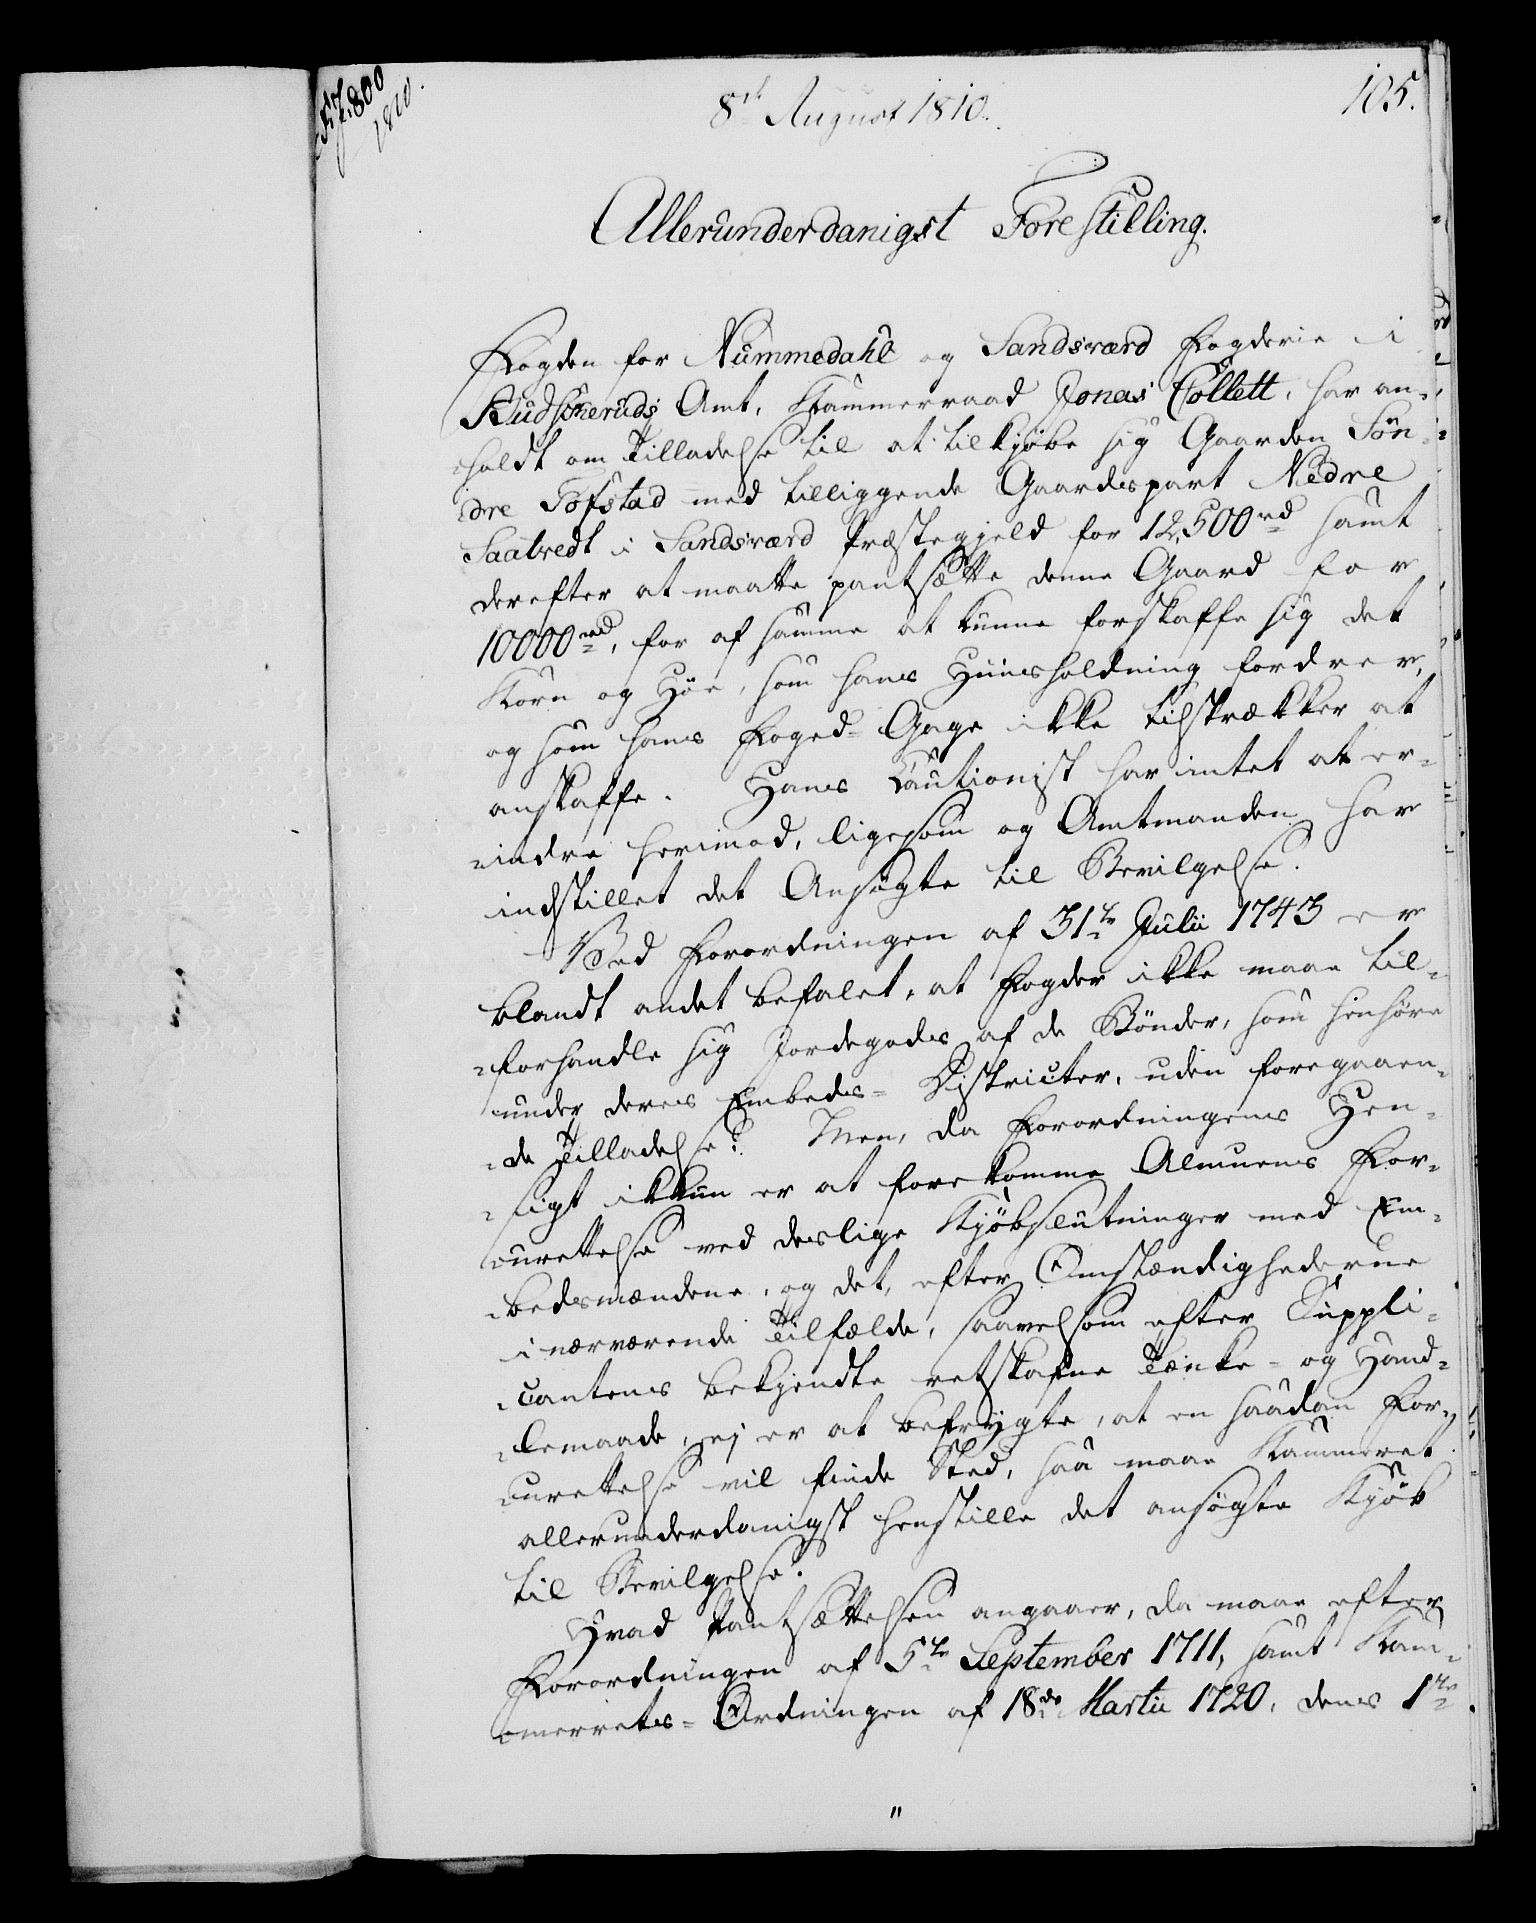 800
1810.
8de August 1810.
105.
Allerunderdanigst Forestilling.
Fogden for Nummedahl og Sandsværd Fogderie i
Budscheruds Amt, Kammerraad Jonas Collett, har an-
holdt om Tilladelse til at tilkjøbe sig Gaarden Søn-
dre Tofstad med tilliggende Gaardspart Nedre
Saatvedt i Sandsværd Præstegjeld for 12,500rd samt
derefter at maatte pantsætte denne Gaard for
10000rd, for af samme at kunne forskaffe sig det
Korn og Høe, som hans Huusholdning fordrer,
og som hans Foged-Gage ikke tilstrækker at
anskaffe. Hans Cautionist har intet at er-
indre herimod, ligesom og Amtmanden har
indstillet det Ansøgte til Bevilgelse.
Ved Forordningen af 31te Julii 1743 er
blandt andet befalet, at Fogder ikke maae til-
forhandle sig Jordegods af de Bønder, som henhøre
under deres Embeds-Districter, uden foregaaen-
de Tilladelse. Men, da Forordningens Hen-
sigt ikkun er at forekomme Almuens For-
urettelse ved deslige Kjøbslutninger med Em-
bedsmændene, og det, efter Omstændighederne
i nærværende Tilfælde, saavelsom efter Suppli-
cantens bekjendte retskafne Tænke- og Hand-
lemaade, ej er at befrygte, at en saadan For-
urettelse vil finde Sted, saa maae Kammeret
allerunderdanigst henstille det ansøgte Kjøb
til Bevilgelse.
Hvad Pantsættelsen angaaer, da maae efter
Forordningen af 5te September 1711, samt Kam-
merrets-Ordningen af 18de Martii 1720, dens 1te
"